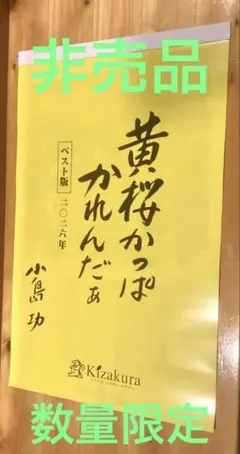 非売品
黄桜かっぱ
かれんだぁ
ベスト版 二〇二六年
小島功
Kizakura
数量限定